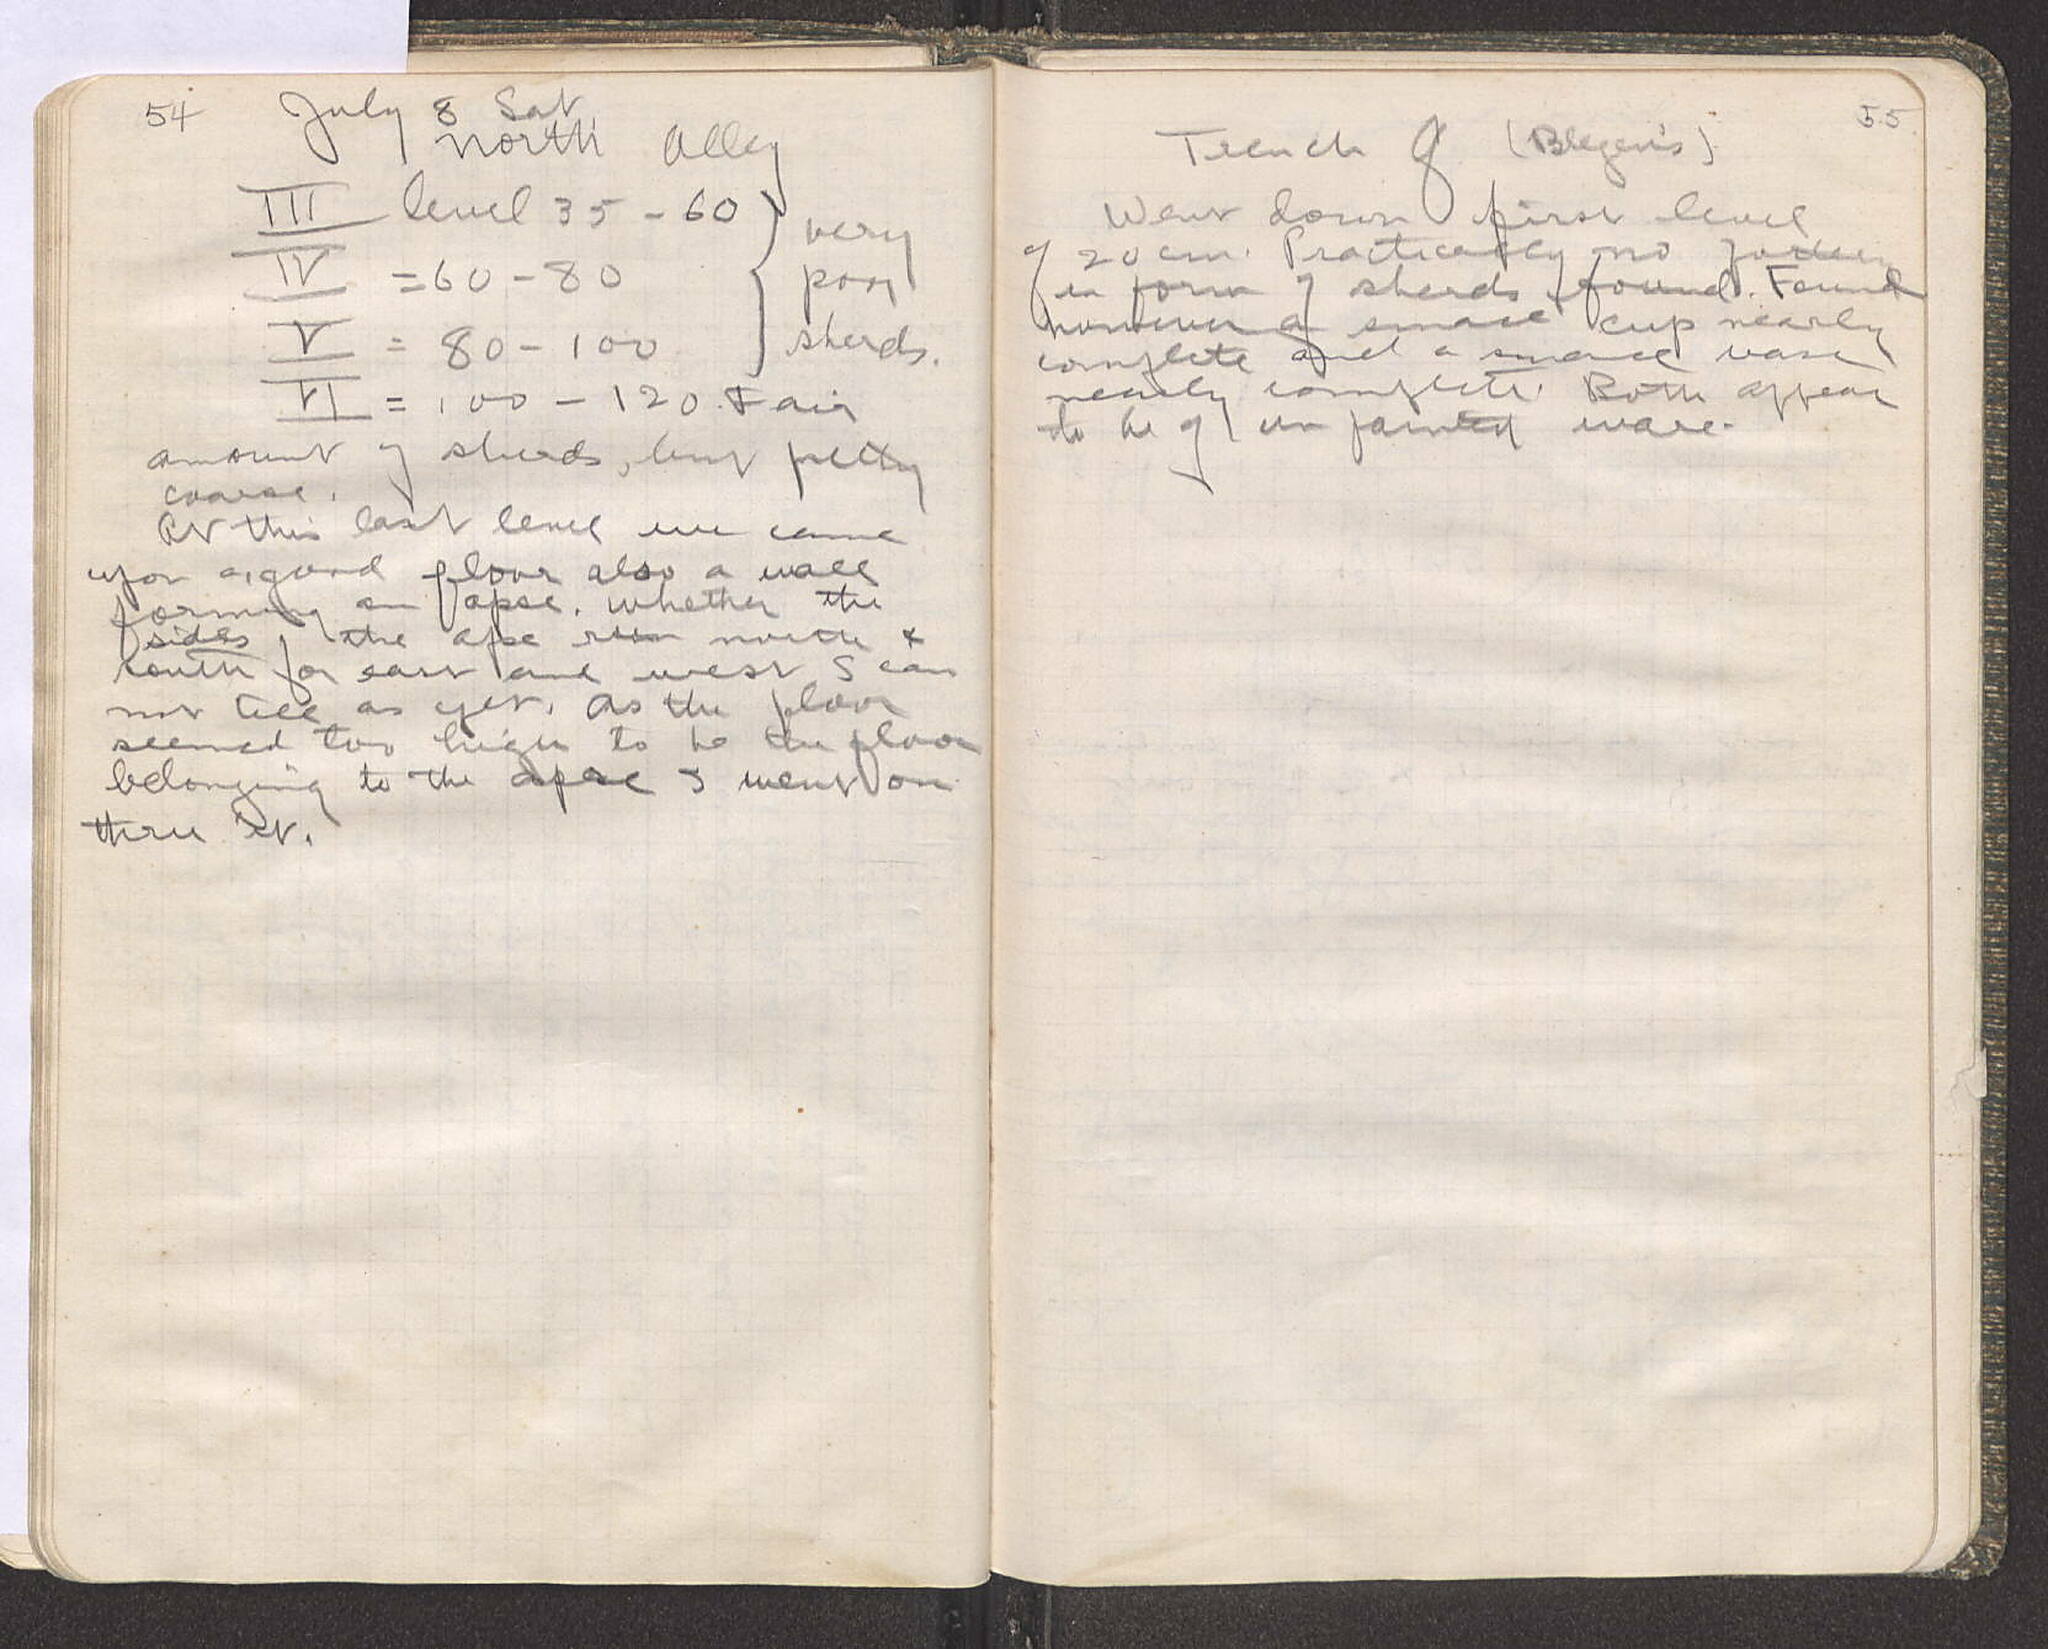 54 July 8 Sat
North Alley
III level 35 - 60 } very
IV = 60 - 80 poor
V = 80 - 100 sherds.
VI = 100 - 120. Fair
amount of sherds, but pretty
coarse.
At this last level we came
upon a good floor also a wall
forming an apse. Whether the
sides of the apse run north &
south or east and west I can
not tell as yet. As the floor
seemed too high to be the floor
belonging to the apse I went on
thru it.
55.
Trench G (Blegen's)
Went down first level
of 20 cm. Practically no pottery
in form of sherds found. Found
however a small cup nearly
complete and a small vase
nearly complete. Both appear
to be of unpainted ware.